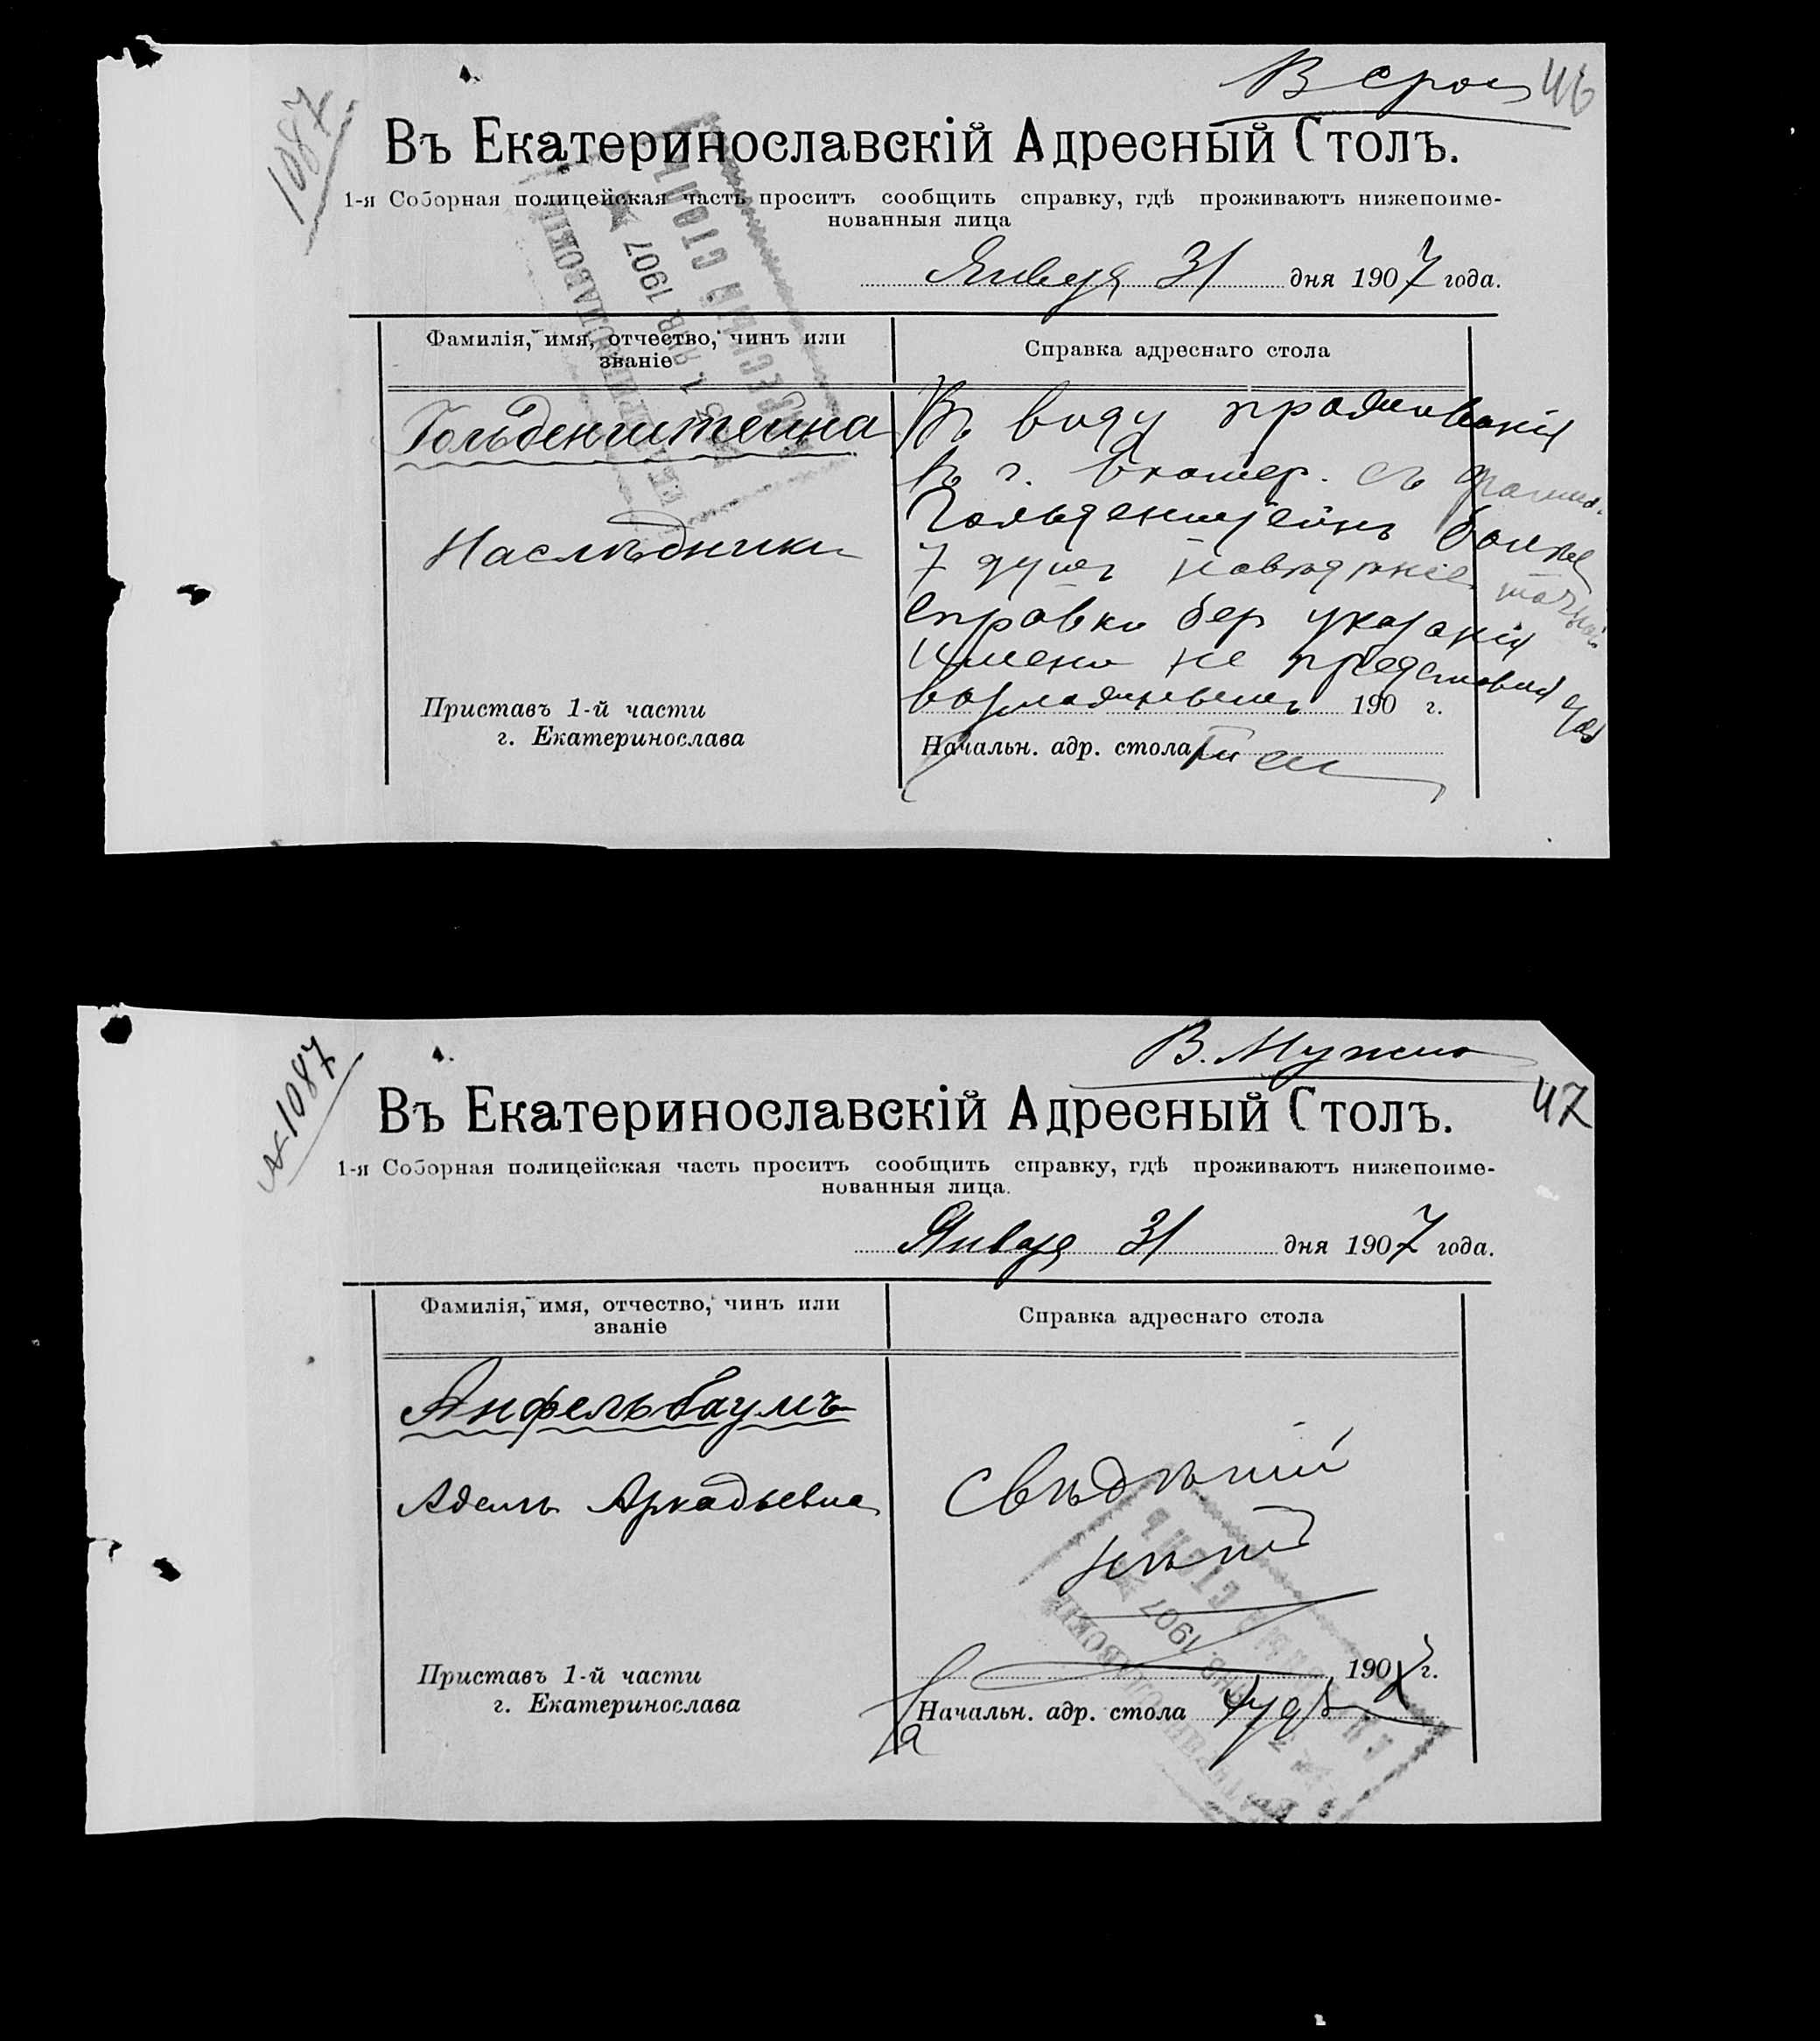 46
1087
Въ Екатеринославскій Адресный Столъ.
1-я Соборная полицейская часть проситъ сообщить справку, гдѣ проживаютъ нижепоиме-
нованныя лица
Января 31 дня 1907 года.
Фамилія, имя, отчество, чинъ или
званіе
Справка адреснаго стола
Гольденштейна
Наслѣдники
Въ виду проживанія
въ г. Екатер. съ фамил.
Гольденштейнъ болѣе
7 душъ наведеніе точной
справки безъ указанія
имени не представляется
возможнымъ 190 г.
Приставъ 1-й части
г. Екатеринослава
Начальн. адр. стола
ЕКАТЕРИНОСЛАВСКІЙ
31 ЯНВ 1907
АДРЕСНЫЙ СТОЛЪ
47
№ 1087
Въ Екатеринославскій Адресный Столъ.
1-я Соборная полицейская часть проситъ сообщить справку, гдѣ проживаютъ нижепоиме-
нованныя лица.
Января 31 дня 1907 года.
Фамилія, имя, отчество, чинъ или
званіе
Справка адреснаго стола
Анфельбаумъ
Адель Аркадьевна
Свѣдѣній
нѣтъ
Приставъ 1-й части
г. Екатеринослава
1907 г.
Начальн. адр. стола